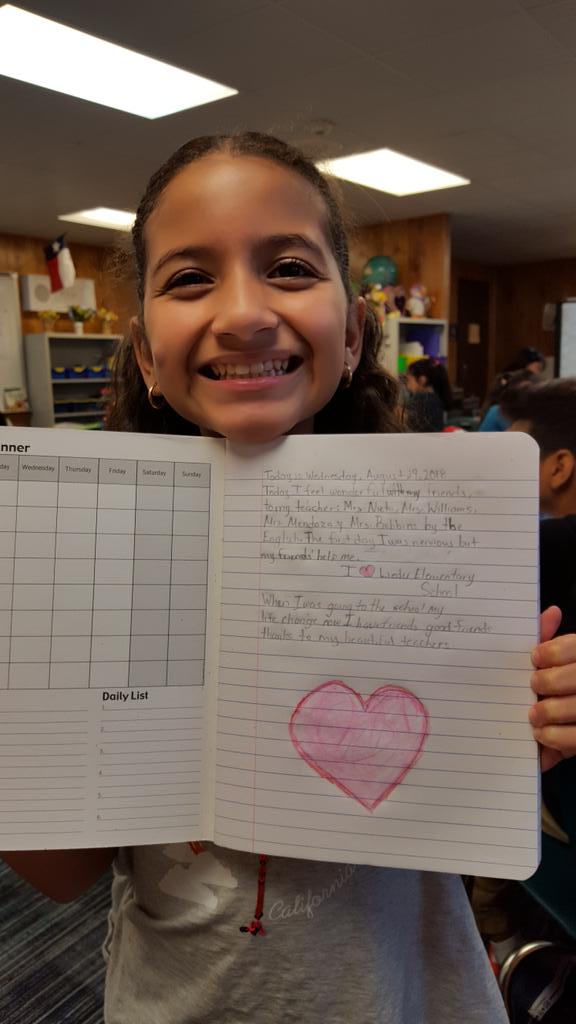 nner
day Wednesday Thursday Friday Saturday Sunday
Daily List
1.
2.
3.
4.
5.
6.
Today is Wednesday, August 29, 2018
Today I feel wonderful with my friends,
to my teachers Mrs. Nieto, Mrs. Williams,
Mrs. Mendoza y Mrs. Bobbins by the
English. The first day I was nervious but
my friends' help me.
I Elementary
School
When I was going to the school my
life change now I have friends good friends
thanks to my beautiful teachers.
California